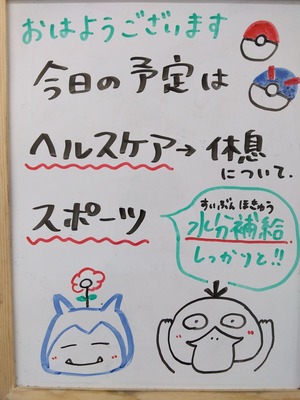 おはようございます
今日の予定は
ヘルスケア→休息
について.
スポーツ
すいぶんほきゅう
水分補給
しっかりと!!